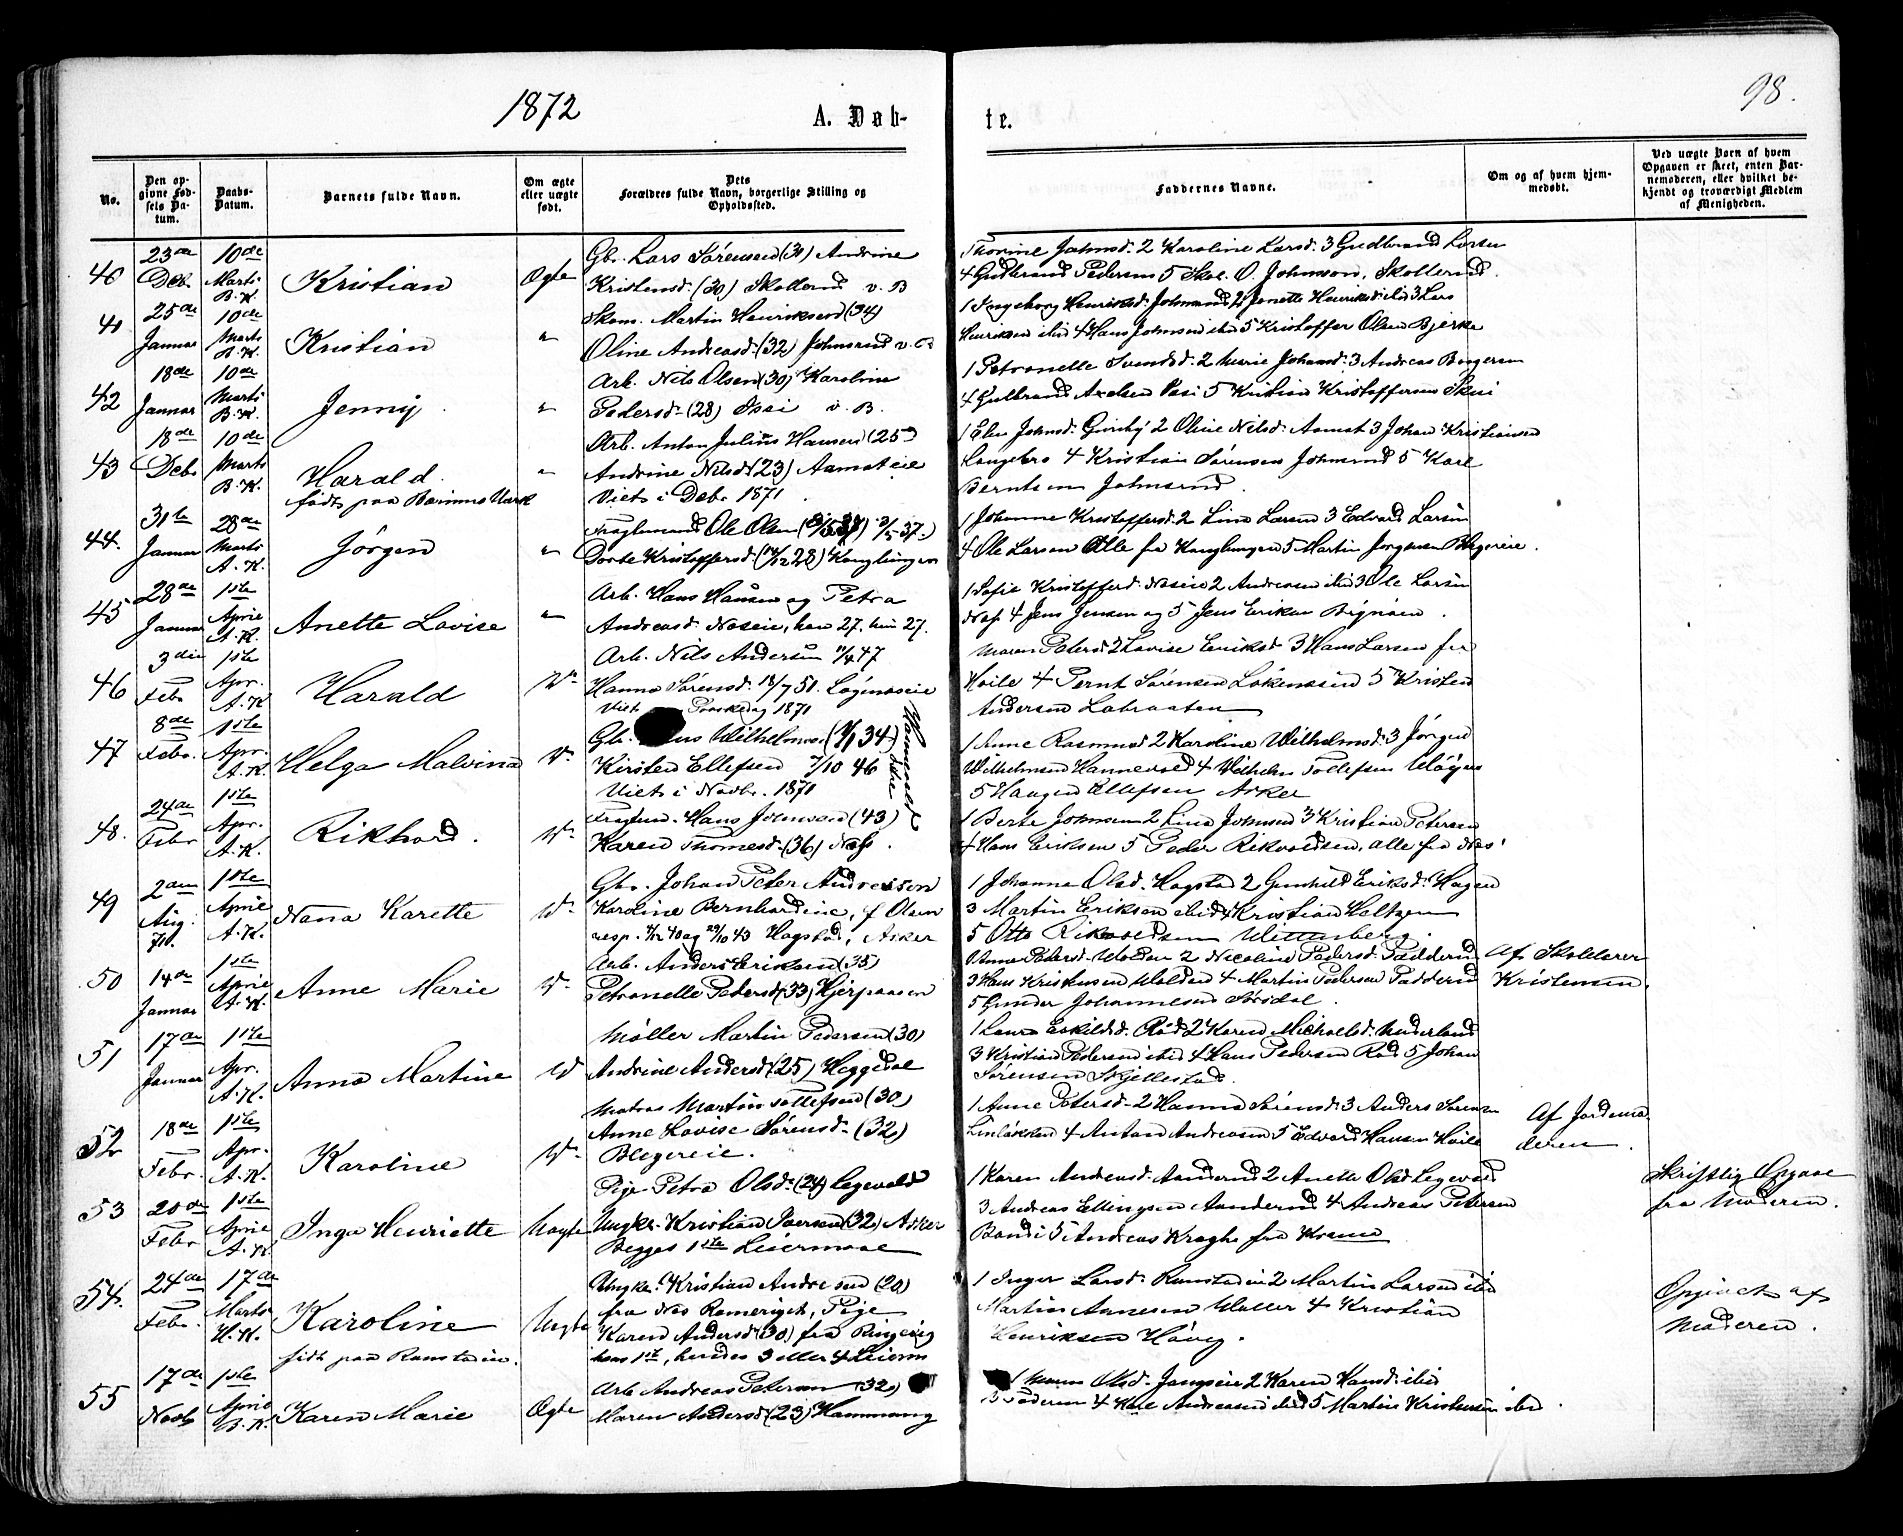 1872
A. Døb-
te.
98.
No.
Den op-
givne Fød-
sels Da-
tum.
Daabs-
Datum.
Barnets fulde Navn.
Om ægte
eller uægte
født.
Dets
Forældres fulde Navn, borgerlige Stilling og
Opholdssted.
Faddernes Navne.
Om og af hvem hjem-
medøbt.
Ved uægte Børn af hvem
Opgaven er skeet, enten Bar-
nemoderen, eller hvilket be-
kjendt og troværdigt Medlem
af Menigheden.
40
23de
Debr.
10de
Marts
B.K.
Kristian
Ægte
Gbr. Lars Sørensen (30) Andrine
Kristensd. (30) Skollerud v. B
Thorine Johnsd. 2 Karoline Larsd. 3 Gudbrand Larsen
4 Gudbrand Pedersen 5 Skol. O. Johnson, Skollerud.
41
25de
Januar
10de
Marts
B.K.
Kristian
"
Skom. Martin Henriksen (34)
Oline Andreasd. (32) Johnsrud v. B
1 Ingeborg Henriksd. Johnsrud 2 Janette Henriksd ibid 3 Lars
Henriksen ibid 4 Hans Johnsen ibid 5 Kristoffer Olsen Bjerke
42
18de
Januar
10de
Marts
B.K.
Jenny
"
Arb. Nils Olsen (30) Karoline
Pedersd. (28) v. B.
1 Petronelle Svendsd. 2 Marie Johansd. 3 Andreas Borgersen
4 Gulbrand Axelsen 5 Kristian Kristoffersen Skui
43
18de
Debr
10de
Marts
B.K.
Harald
født paa Bærums Værk
"
Arb. Anton Julius Hansen (25)
Andrine Nilsd (23) Aamoteie
Viets i Debr. 1871.
1 Elen Johnsd. 2 Oline Nilsd. Aamot 3 Johan Kristiansen
4 Kristian Sørensen Johnsrud 5 Karl
Berntsen Johnsrud.
44.
31te
Januar
28de
Marts
A.K.
Jørgen
"
Ole Olsen 3/5 37.)
Dorte Kristoffersd. (14/12 28) Konglungen
1 Johanne Kristoffersd. 2 Lina Larsen 3 Edvard Larsen
4 Ole Larsen Alle fra Konglungen 5 Martin Jørgensen Blegereie.
45
28de
Januar
1ste
April
A.K.
Anette Lovise
"
Arb. Hans Hansen og Petra
Andreasd. Næseie, han 27. hun 27.
1 Sofie Kristofferd. Næseie 2 Andreasen ibid 3 Ole Larsen
Næs 4 Jens Jensen og 5 Jens Eriksen
46
3die
Febr
1ste
Apr.
A.K
Harald
Arb. Nils Andersen 11/4 47
Hanna Sørensd. 18/7 51.
Viet Paaskedag 1871
Maren Petersd 2 Lovise Eriksd 3 Hans Larsen fra
Hoile 4 Bernt Sørensen Løkenæsen 5 Kristen
Andersen Labraaten
47
8de
Febr.
1ste
Apr.
A.K.
Helga Malvina
Gbr. Wilhelms. (1/1 34)
Kirsten Ellefsen 7/10 46
Viets i Novbr. 1871
Hannevold
Asker
1 Anne Rasmusd 2 Karoline Wilhelmsd. 3 Jørgen
Wilhelmsen Hannevold 4 Wilhelm Tollefsen
5 Haagen Ellefsen Asker
48.
24de
Febr
1ste
Apr.
A.K.
Rikhard.
Hans Johnsen (43)
Karen Thomesd. (36) Næs.
1 Berte Johnsen 2 Lina Johnsen 3 Kristian Petersen
4 Hans Eriksen 5 Peder Rikvoldsen, alle fra Næs
49
2den
Aug.
71.
1ste
April
A.K.
Nana Karette
Gbr. Johan Peter Andresen
Karoline Bernhardine, f. Olsen
resp. 40 og 29/10 43 Hogstad, Asker
1 Johanna Olsd. Hogstad 2 Gunhild Eriksd. Hagen
3 Martin Eriksen ibid 4 Kristian Holtzen
5 Otto Rikvoldsen Wittenberg.
50
14de
Januar
1ste
April
A.K.
Anne Marie
Arb. Anders Eriksen (35)
Petronelle Pedersd. (33) Hjerpaasen
Anne Pedersd. Wolden 2 Nicoline Pedersd. Padderud
3 Hans Kristensen Wolden 4 Martin Pedersen Padderud
5 Gunder Johannesen Sørsdal.
Af Skolelærer
Kristensen.
51
17de
Januar
1ste
Apr.
A.K.
Anna Martine
Møller Martin Pedersen (30)
Andrine Andersd (25) Heggedal
1 Laura Eskildsd. Rød 2 Karen Michaelsd. Underland
3 Kristian Pedersen ibid 4 Hans Pedersen Rød 5 Johan
Sørensen Skjellestad.
52
18de
Febr
1ste
Apr.
A.K.
Karoline
Matros Martin Tollefsen (30)
Anne Lovise Sørensd. (32)
Blegereie.
1 Anne Petersd. 2 Hanna Sørensd. 3 Anders Sørensen
4 Antan Andreasen 5 Edvard Hansen Hoile
Af Jordemo
deren.
53
20de
Febr
1ste
April
A.K.
Inga Henriette
Uægte
Pige Petra Olsd. (24)
Ungkr. Kristian Iversen (32) Asker
Begges 1ste Leiermaal
1 Karen Andreasd. Aanderud 2 Anette Olsd
3 Andreas Ellingsen Aanderud 4 Andreas Petersen
5 Andreas Kraghe fra
Skriftlig Opgave
fra Moderen.
54.
24de
Febr.
17de
Marts
H.K.
Karoline
født paa Ramstadeie.
Uægte
Ungkr. Kristian Andresen (20)
fra Næs Romerigh, Pige
Karen Andersd (30) fra Ringerig
hans 1st, hendes 3 eller 4 Leierm
1 Inger Larsd. Ramstadeie 2 Martin Larsen ibid
Martin Arnesen Waller 4 Kristian
Henriksen Høvig.
Opgivet af
Moderen.
55
17de
Novbr
1ste
April
B.K.
Karen Marie
Ægte
Arb. Andreas Petersen (32)
Maren Andersd. (23) Hammang
1 Maren Olsd. 2 Karen Hansd. ibid
3 Faderen 4 Karl Andreasen ibid 5 Martin Kristensen ibid.